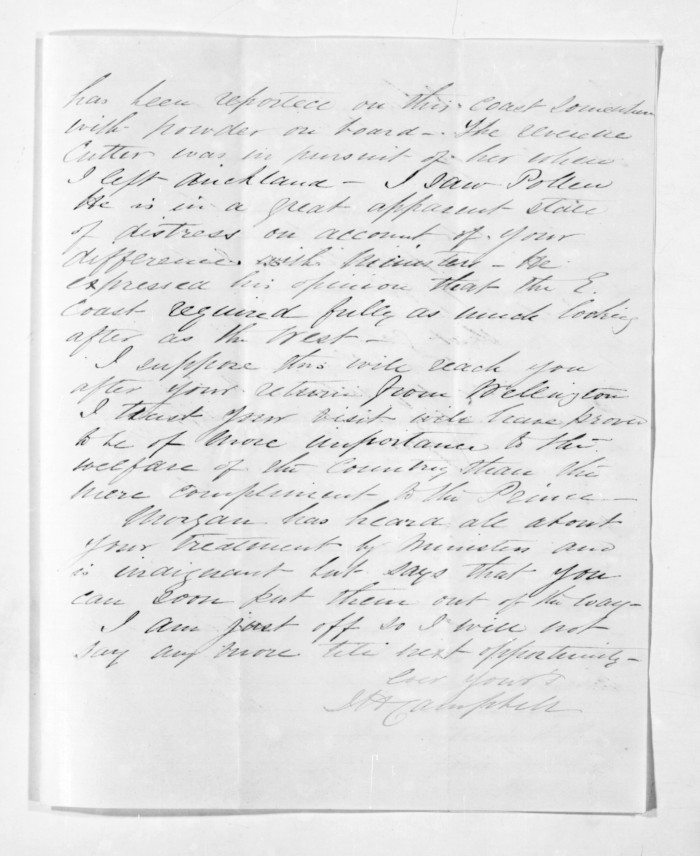 has been reported on this coast somewhere
with powder on board – The revenue
Cutter was in pursuit of her when
I left Auckland – I saw Pollen
He is in a great apparent state
of distress on account of your
difference with Ministers – He
expressed his opinion that the E.
Coast required fully as much looking
after as the West –
I suppose this will reach you
after your return from Wellington
I trust your visit will have proved
to be of more importance to the
welfare of the Country than the
mere compliment to the Prince –
Morgan has heard all about
your treatment by Ministers and
is indignant but says that you
can soon put them out of the way –
I am just off so I will not
say any more till next opportunity –
Ever yours
Campbell